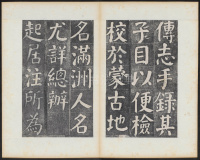 傳志手錄其
子目以便檢
校於蒙古地
名滿洲人名
尤詳總辦
起居注所為